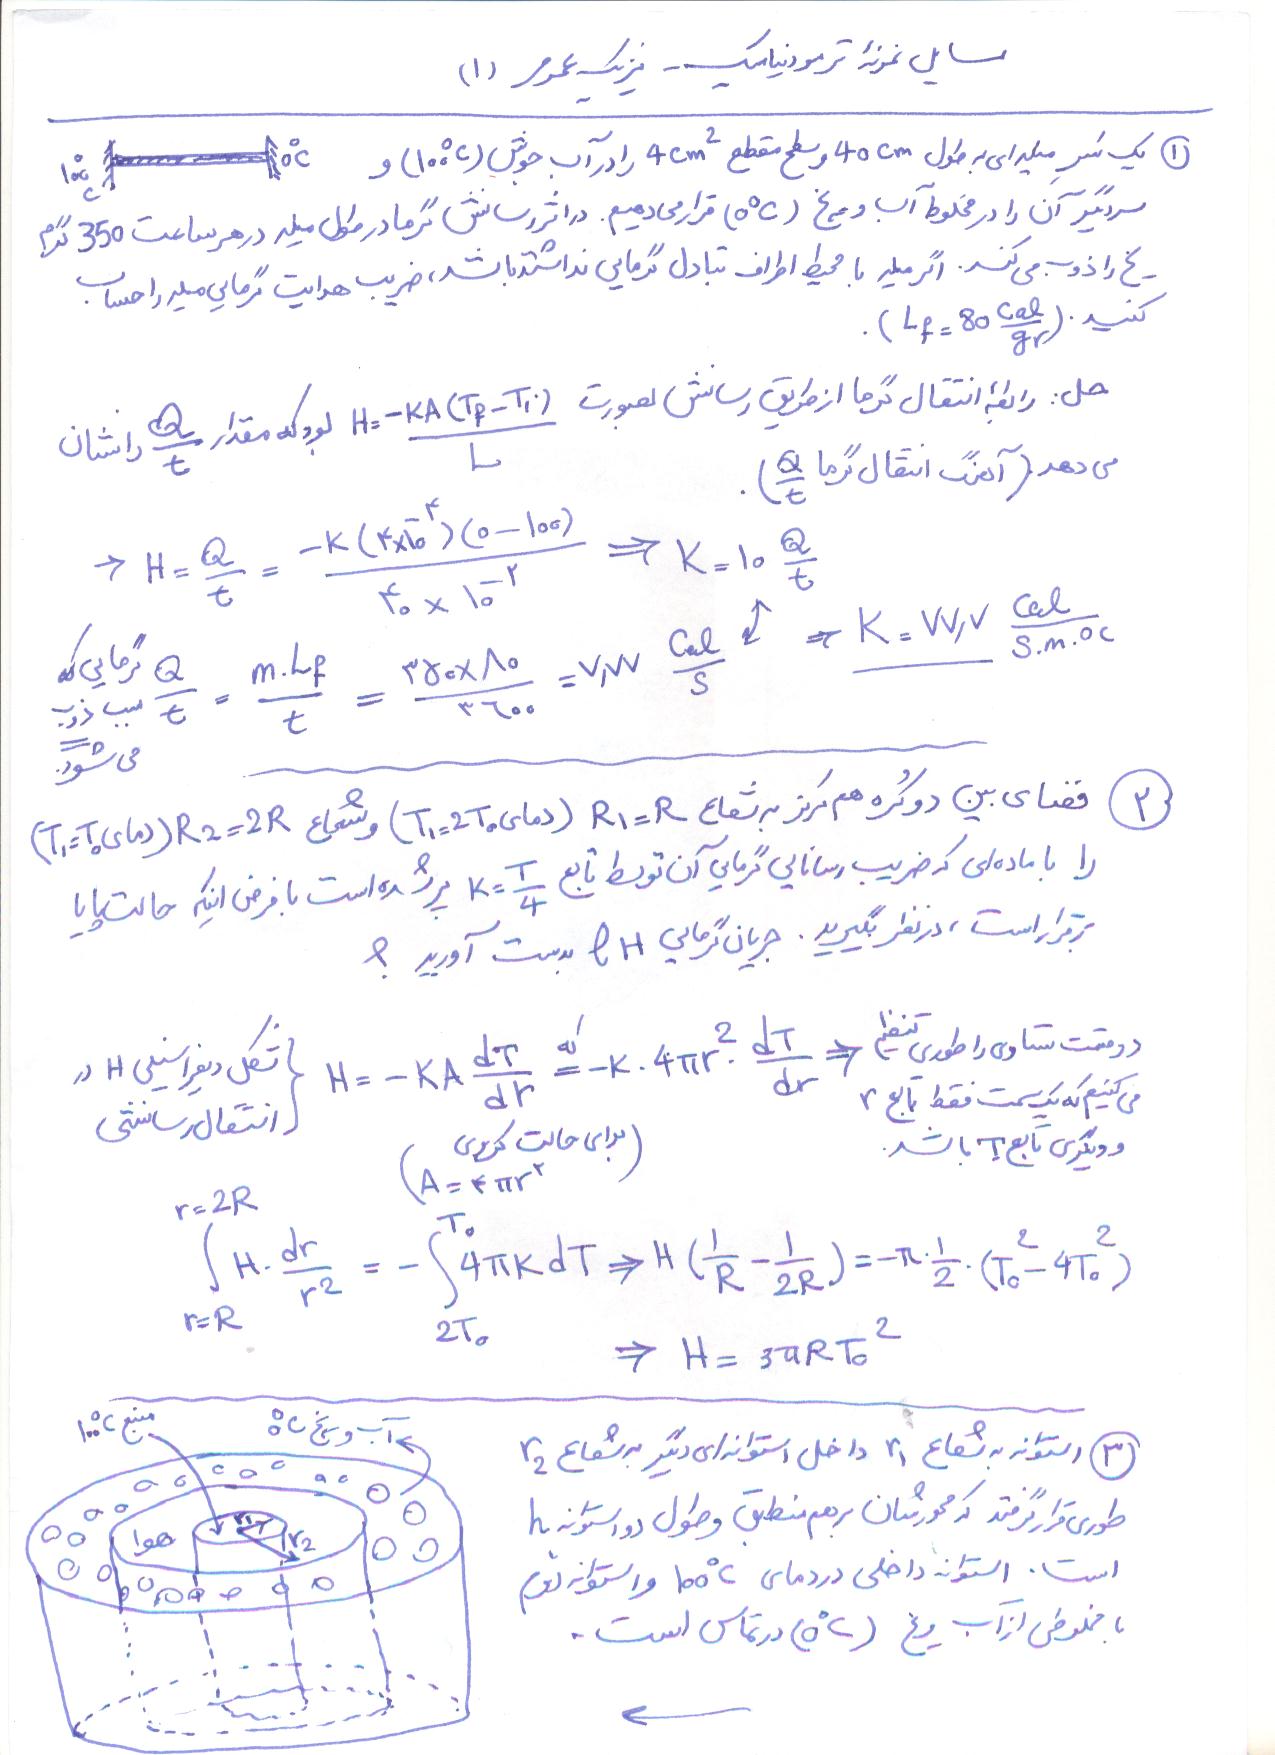 مسایل نمونهٔ ترمودینامیک - فیزیک عمومی (۱)
① یک سَرِ میله‌ای به طول 40 cm و سطح مقطع 4 cm² را در آب جوش (۱۰۰°C) و
سر دیگر آن را در مخلوط آب و یخ (۰°C) قرار می‌دهیم. در اثر رسانش گرما در طول میله در هر ساعت 350 گرم
یخ را ذوب می‌کند. اگر میله با محیط اطراف تبادل گرمایی نداشته باشد، ضریب هدایت گرمایی میله را حساب
کنید. (Lf = 80 Cal/gr).
۱۰۰°C ۰°C
حل: رابطهٔ انتقال گرما از طریق رسانش بصورت H = -KA(Tf - Ti)/L بود که مقدار Q/t را نشان
می دهد (آهنگ انتقال گرما Q/t).
→ H = Q/t = -K(۴×۱۰⁻⁴)(۰-۱۰۰) / ۴۰×۱۰⁻² ⇒ K = ۱۰ Q/t
گرمایی که سبب ذوب می شود. Q/t = m.Lf/t = ۳۵۰×۸۰/۳۶۰۰ = ۷,۷۷ Cal/s ⇒ K = ۷۷,۷ Cal/s.m.°C
② فضای بین دو کُره هم مرکز به شعاع R₁=R (دمای T₁=2T₀) و شعاع R₂=2R (دمای T₁=T₀)
را با ماده‌ای که ضریب رسانایی گرمایی آن توسط تابع K = T/4 پر شده است با فرض اینکه حالت پایا
برقرار است، در نظر بگیرید. جریان گرمایی H را بدست آورید؟
شکل دیفرانسیلی H در انتقال رسانشی } H = -KA dT/dr که = -K.4πr². dT/dr ⇒ دو قسمت تساوی را طوری تنظیم
می کنیم که یک سمت فقط تابع r
و دیگری تابع T باشد.
(برای حالت کروی A = ۴πr²)
∫_{r=R}^{r=2R} H. dr/r² = -∫_{2T₀}^{T₀} 4πK dT ⇒ H(1/R - 1/2R) = -π.1/2.(T₀² - 4T₀²)
⇒ H = 3πRT₀²
③ استوانه به شعاع r₁ داخل استوانه‌ای دیگر به شعاع r₂
طوری قرار گرفته که محورشان بر هم منطبق و طول دو استوانه h
است. استوانهٔ داخلی در دمای ۱۰۰°C و استوانه دوم
با مخلوطی از آب و یخ (۰°C) در تماس است.
منبع ۱۰۰°C
آب و یخ ۰°C
هوا
r₁
r₂
←